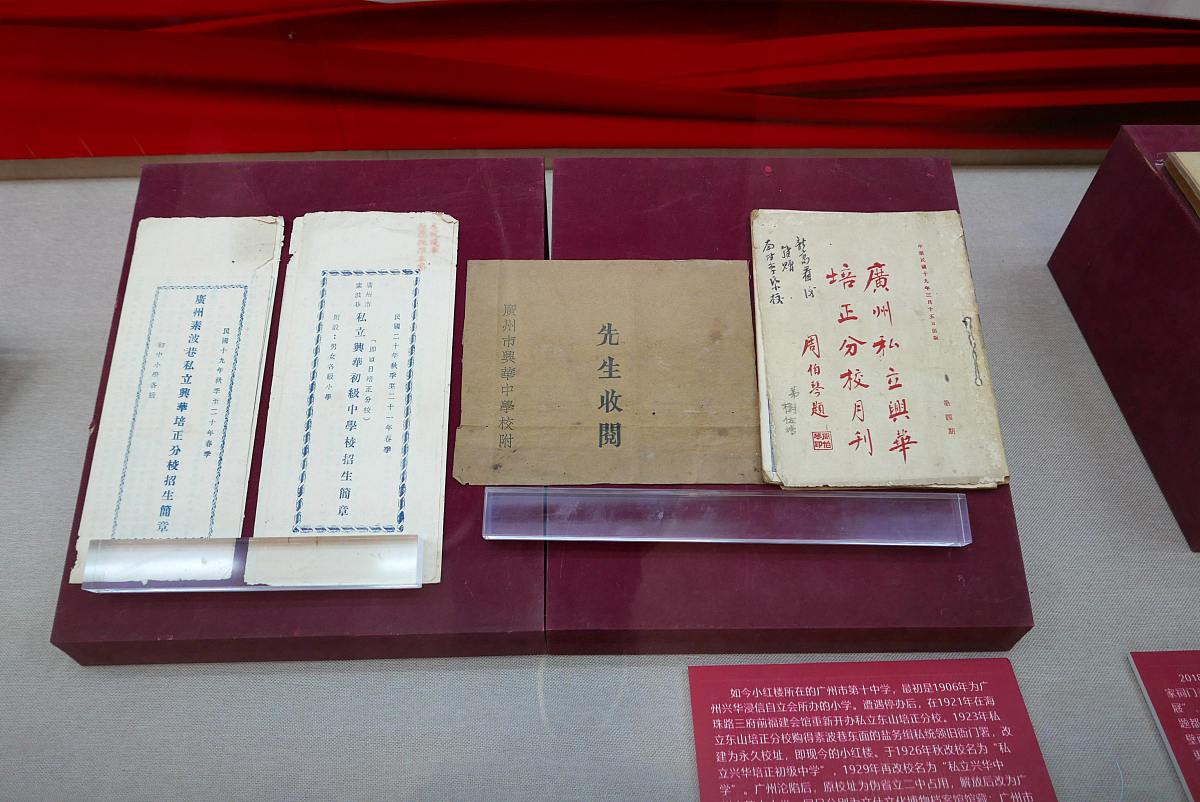 民國十九年秋季至二十年春季
廣州素波巷私立興華培正分校招生簡章
初中小學各級
民國二十年秋季至二十一年春季
廣州市
素波巷
私立興華初級中學校招生簡章
(即夏日培正分校)
附設：男女各級小學
先生收閱
廣州市興華中學校附
中華民國十九年三月十五日出版
廣州私立興華
培正分校月刊
周伯琴題
第四期
如今小红楼所在的广州市第十中学，最初是1906年为广
州兴华浸信自立会所办的小学。遭遇停办后，在1921年在海
珠路三府前福建会馆重新开办私立东山培正分校。1923年私
立东山培正分校购得素波巷东面的盐务缉私统领旧衙门署，改
建为永久校址，即现今的小红楼。于1926年秋改校名为“私
立兴华培正初级中学”，1929年再改校名为“私立兴华中
学”。广州沦陷后，原校址为伪省立二中占用，解放后改为广
2018
家祠门
展”。
题都